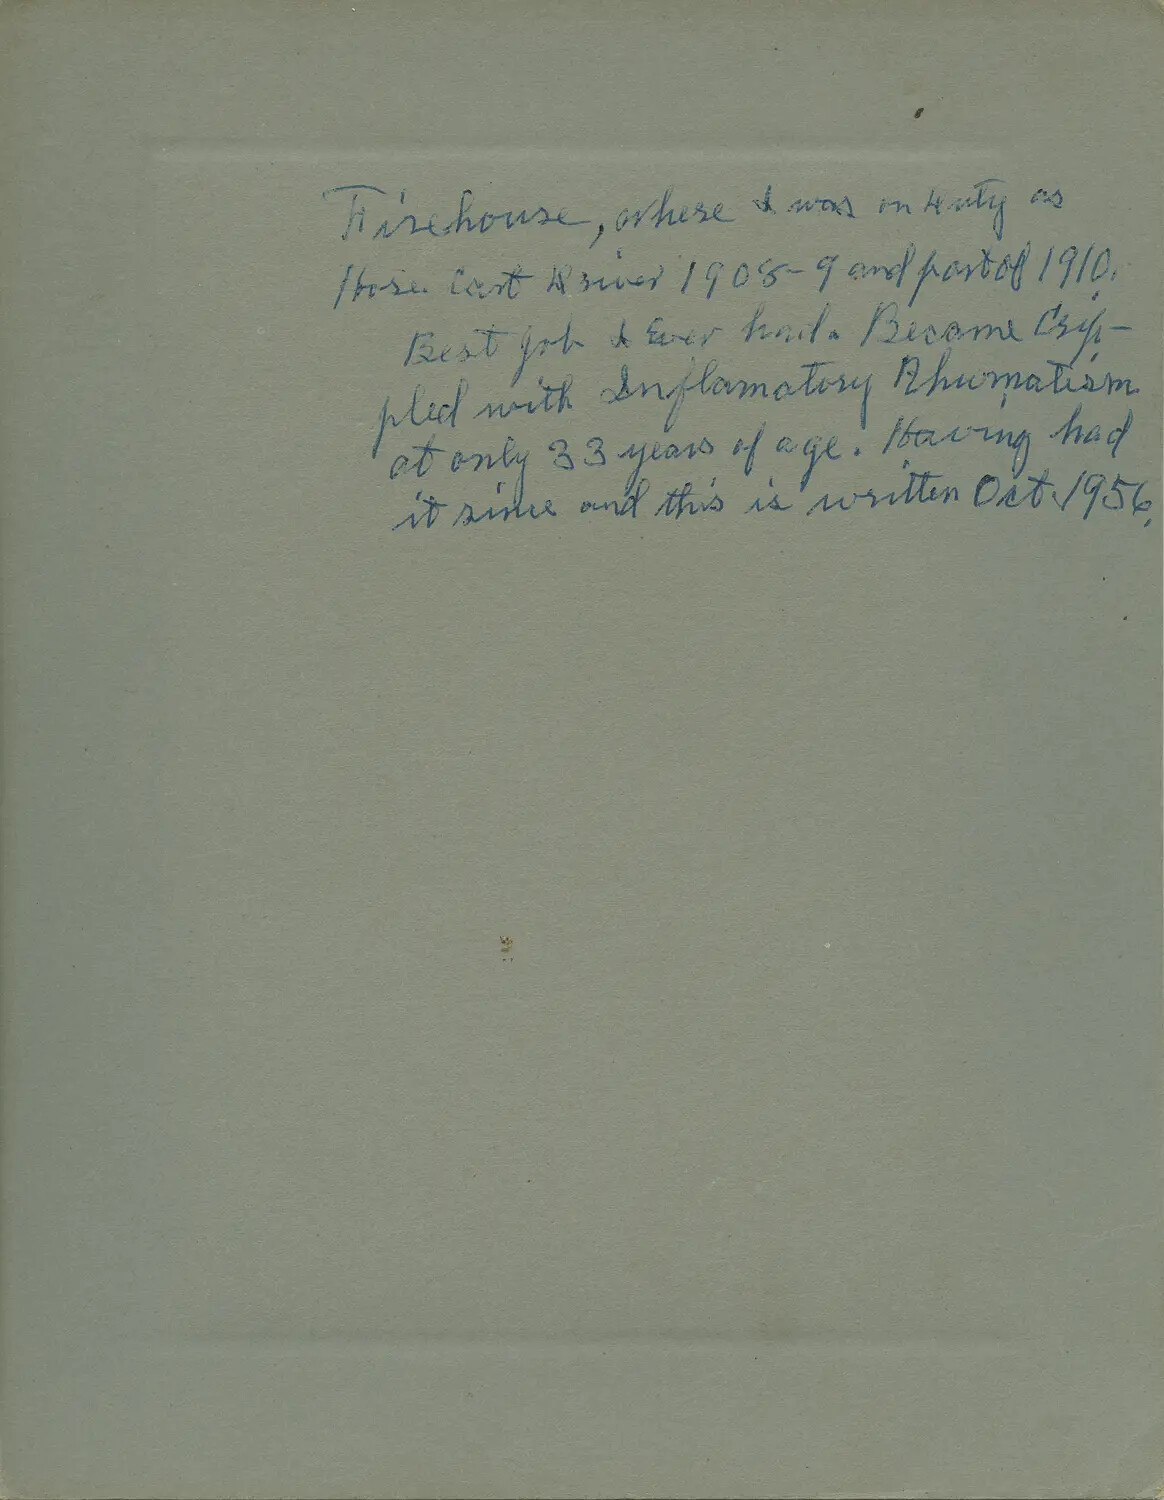 Firehouse, where I was on Duty as
Hose Cart Driver 1908-9 and part of 1910.
Best job I Ever had. Became Crip-
pled with Inflamatory Rhumatism
at only 33 years of age. Having had
it since and this is written Oct. 1956.